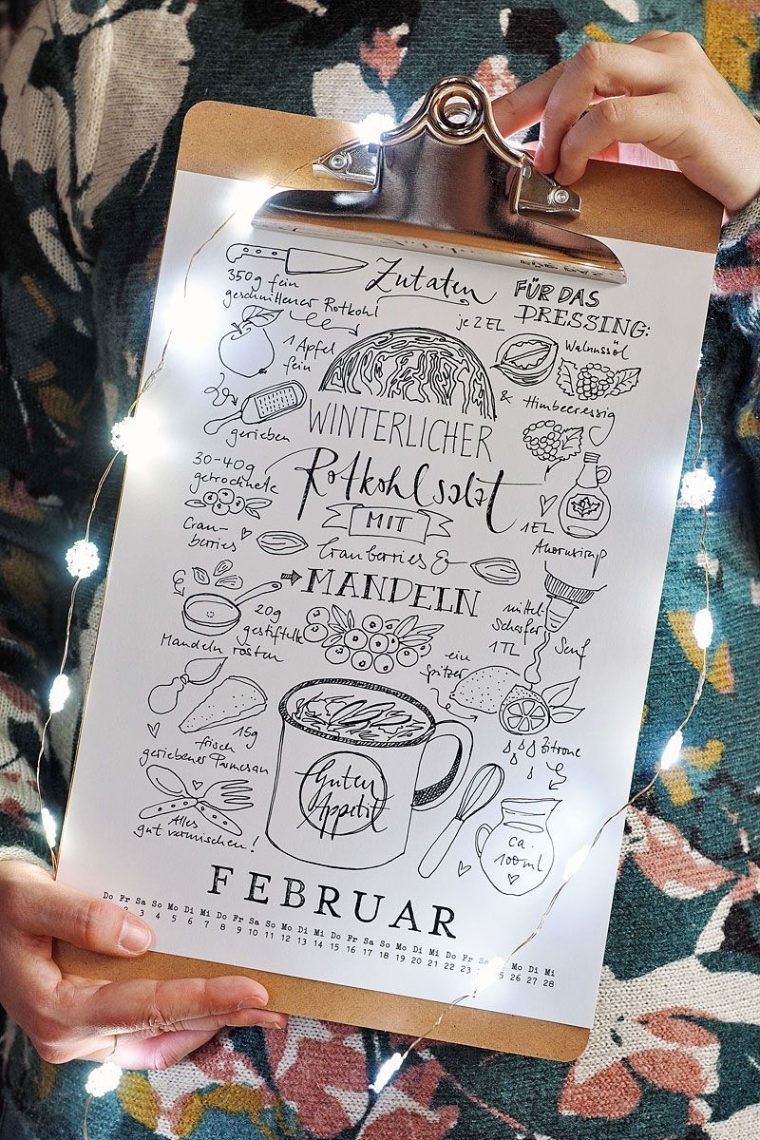 Zutaten
350g fein
geschnittener Rotkohl
1 Apfel
fein
gerieben
30-40g
getrocknete
Cran-
berries
FÜR DAS
DRESSING:
je 2 EL
Walnussöl
& Himbeeressig
1EL
Ahornsirup
WINTERLICHER
Rotkohlsalat
MIT
Cranberries &
MANDELN
20g
gestiftelte
Mandeln rösten
mittel-
scharfer
1TL Senf
ein
Spritzer
Zitrone
15g
frisch
geriebener Parmesan
Alles
gut vermischen!
Guten
Appetit
ca.
100ml
FEBRUAR
Do Fr Sa So Mo Di Mi Do Fr Sa So Mo Di Mi Do Fr Sa So Mo Di Mi Do Fr Sa So Mo Di Mi
2 3 4 5 6 7 8 9 10 11 12 13 14 15 16 17 18 19 20 21 22 23 25 26 27 28